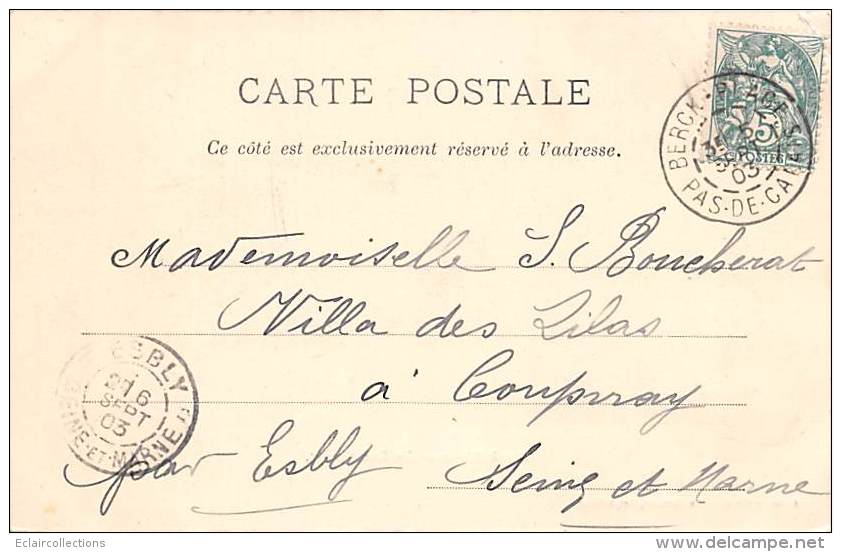 CARTE POSTALE
Ce côté est exclusivement réservé à l'adresse.
BERCK-PLAGE
SEPT
03
PAS-DE-CALAIS
5
POSTES
Mademoiselle S. Boucherat
Villa des Lilas
à Coupvray
par Esbly Seine et Marne
ESBLY
16
SEPT
03
SEINE-ET-MARNE
Eclaircollections
www.delcampe.net